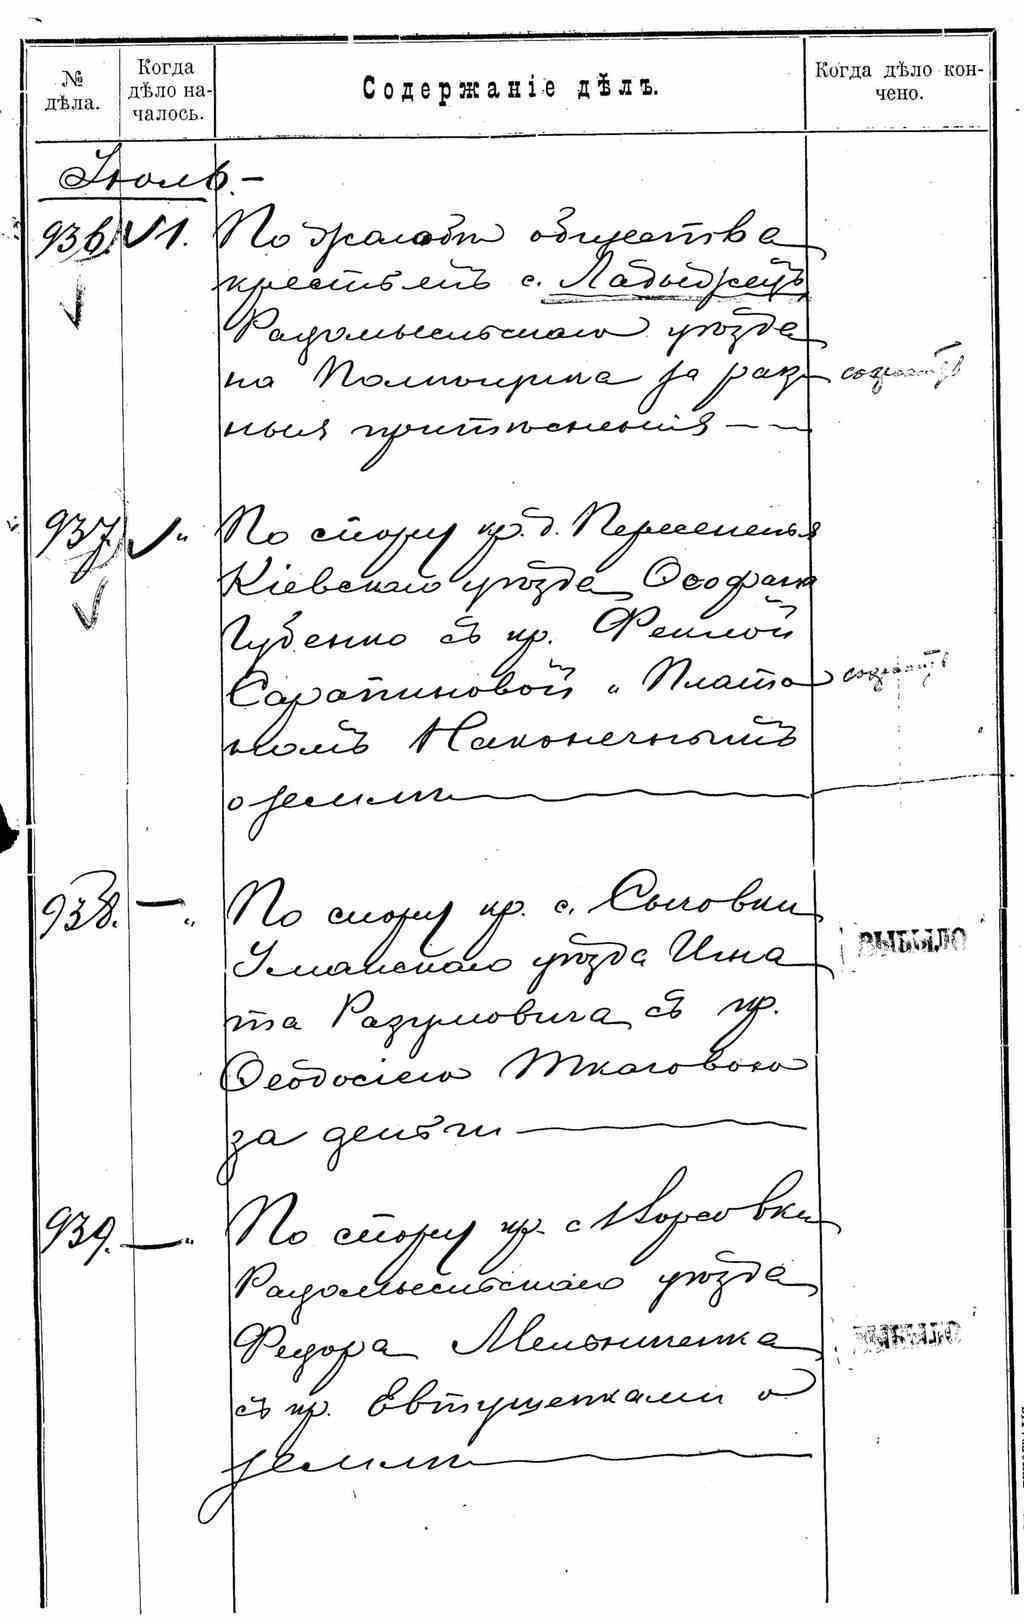 № дѣла.
Когда дѣло началось.
Содержаніе дѣлъ.
Когда дѣло кончено.
Іюль.—
936. √ 1. По жалобѣ общества
крестьянъ с. Ладыжецъ
Радомысльскаго уѣзда
на за раз-
ныя притѣсненія — —
937. √ " По спору кр. д.
Кіевскаго уѣзда Ѳеофана
Губенко съ кр. Феклой
Сарапиновой и Плато-
номъ Наконечнымъ
о землѣ
938. — " По спору кр. с. Сычовки
Уманскаго уѣзда Игна-
та Разумовича съ кр.
Ѳеодосіею Ткачовою
за деньги
ВЫБЫЛО
939. — " По спору кр. с. Корсовки
Радомысльскаго уѣзда
Федора Мельниченка
съ кр. Евтущенками о
землѣ